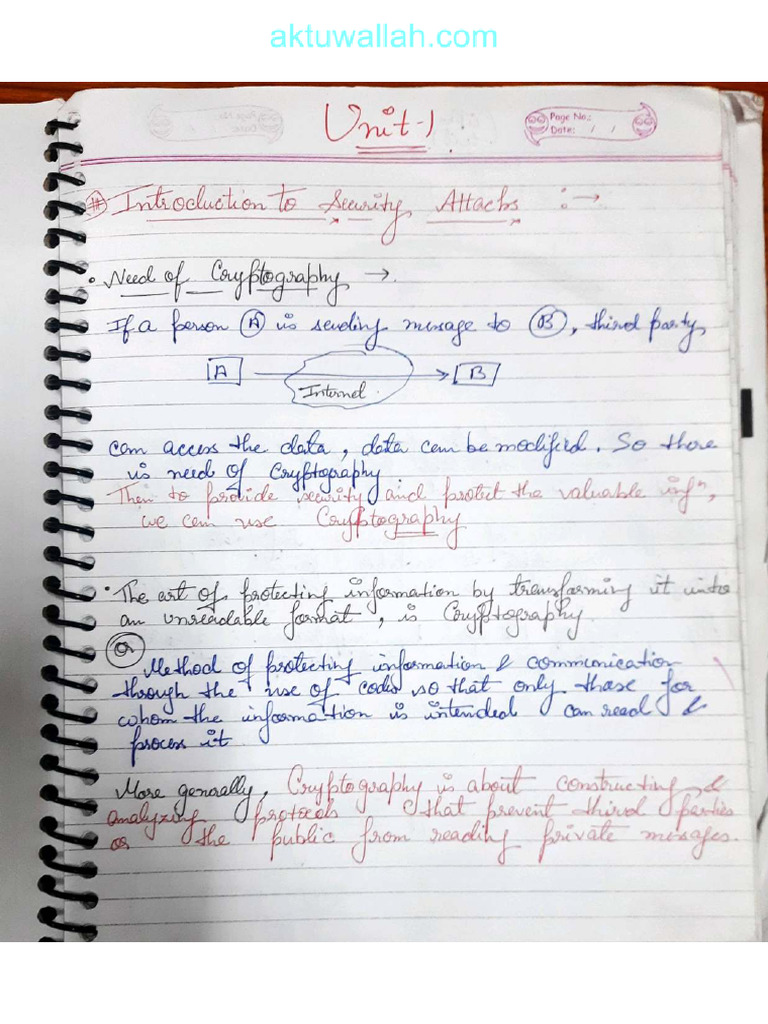 aktuwallah.com
Unit-1
Page No.:
Date: / /
# Introduction to Security Attacks :→
• Need of Cryptography →.
If a person A is sending message to B, third party
A B
Internet.
can access the data, data can be modified. So there
is need of Cryptography
Then to provide security and protect the valuable infⁿ,
we can use Cryptography
• The art of protecting information by transforming it into
an unreadable format, is Cryptography.
or
Method of protecting information & communication
through the use of codes so that only those for
whom the information is intended can read &
process it.
More generally, Cryptography is about constructing &
analyzing protocols that prevent third parties
or the public from reading private messages.